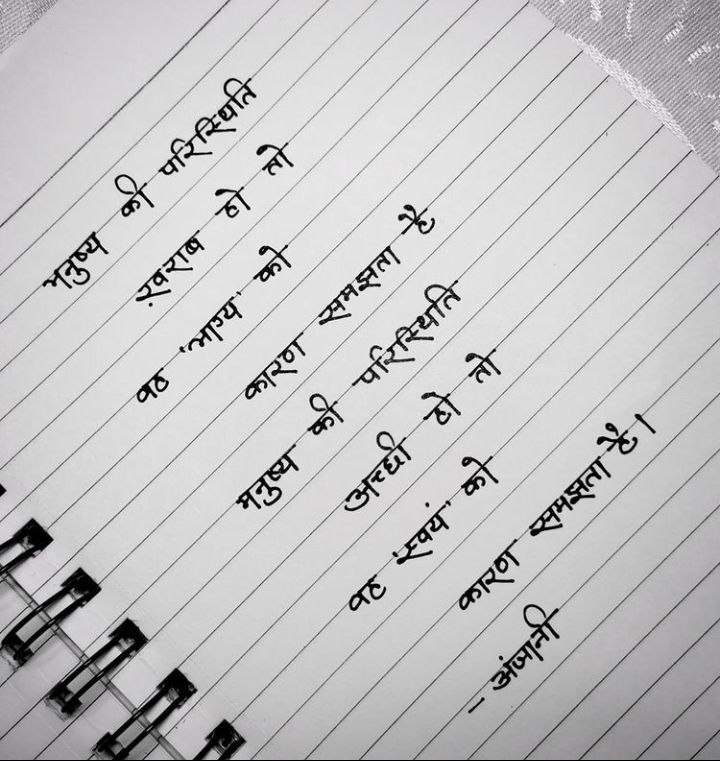 मनुष्य की परिस्थिति
ख़राब हो तो
वह 'भाग्य' को
कारण समझता है
मनुष्य की परिस्थिति
अच्छी हो तो
वह 'स्वयं' को
कारण समझता है।
- अंजानी